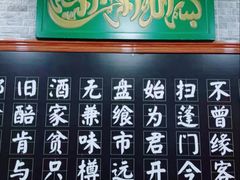 不曾缘客
扫蓬门今
始为君开
盘飧市远
无兼味樽
酒家贫只
旧醅肯与